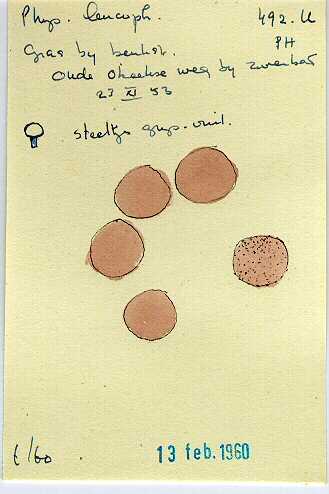 Phys. leucoph. 492.U
PH
Gras by
Oude weg by zwembad
23 XI 53
steeltje grys-viol.
6/60
13 feb. 1960